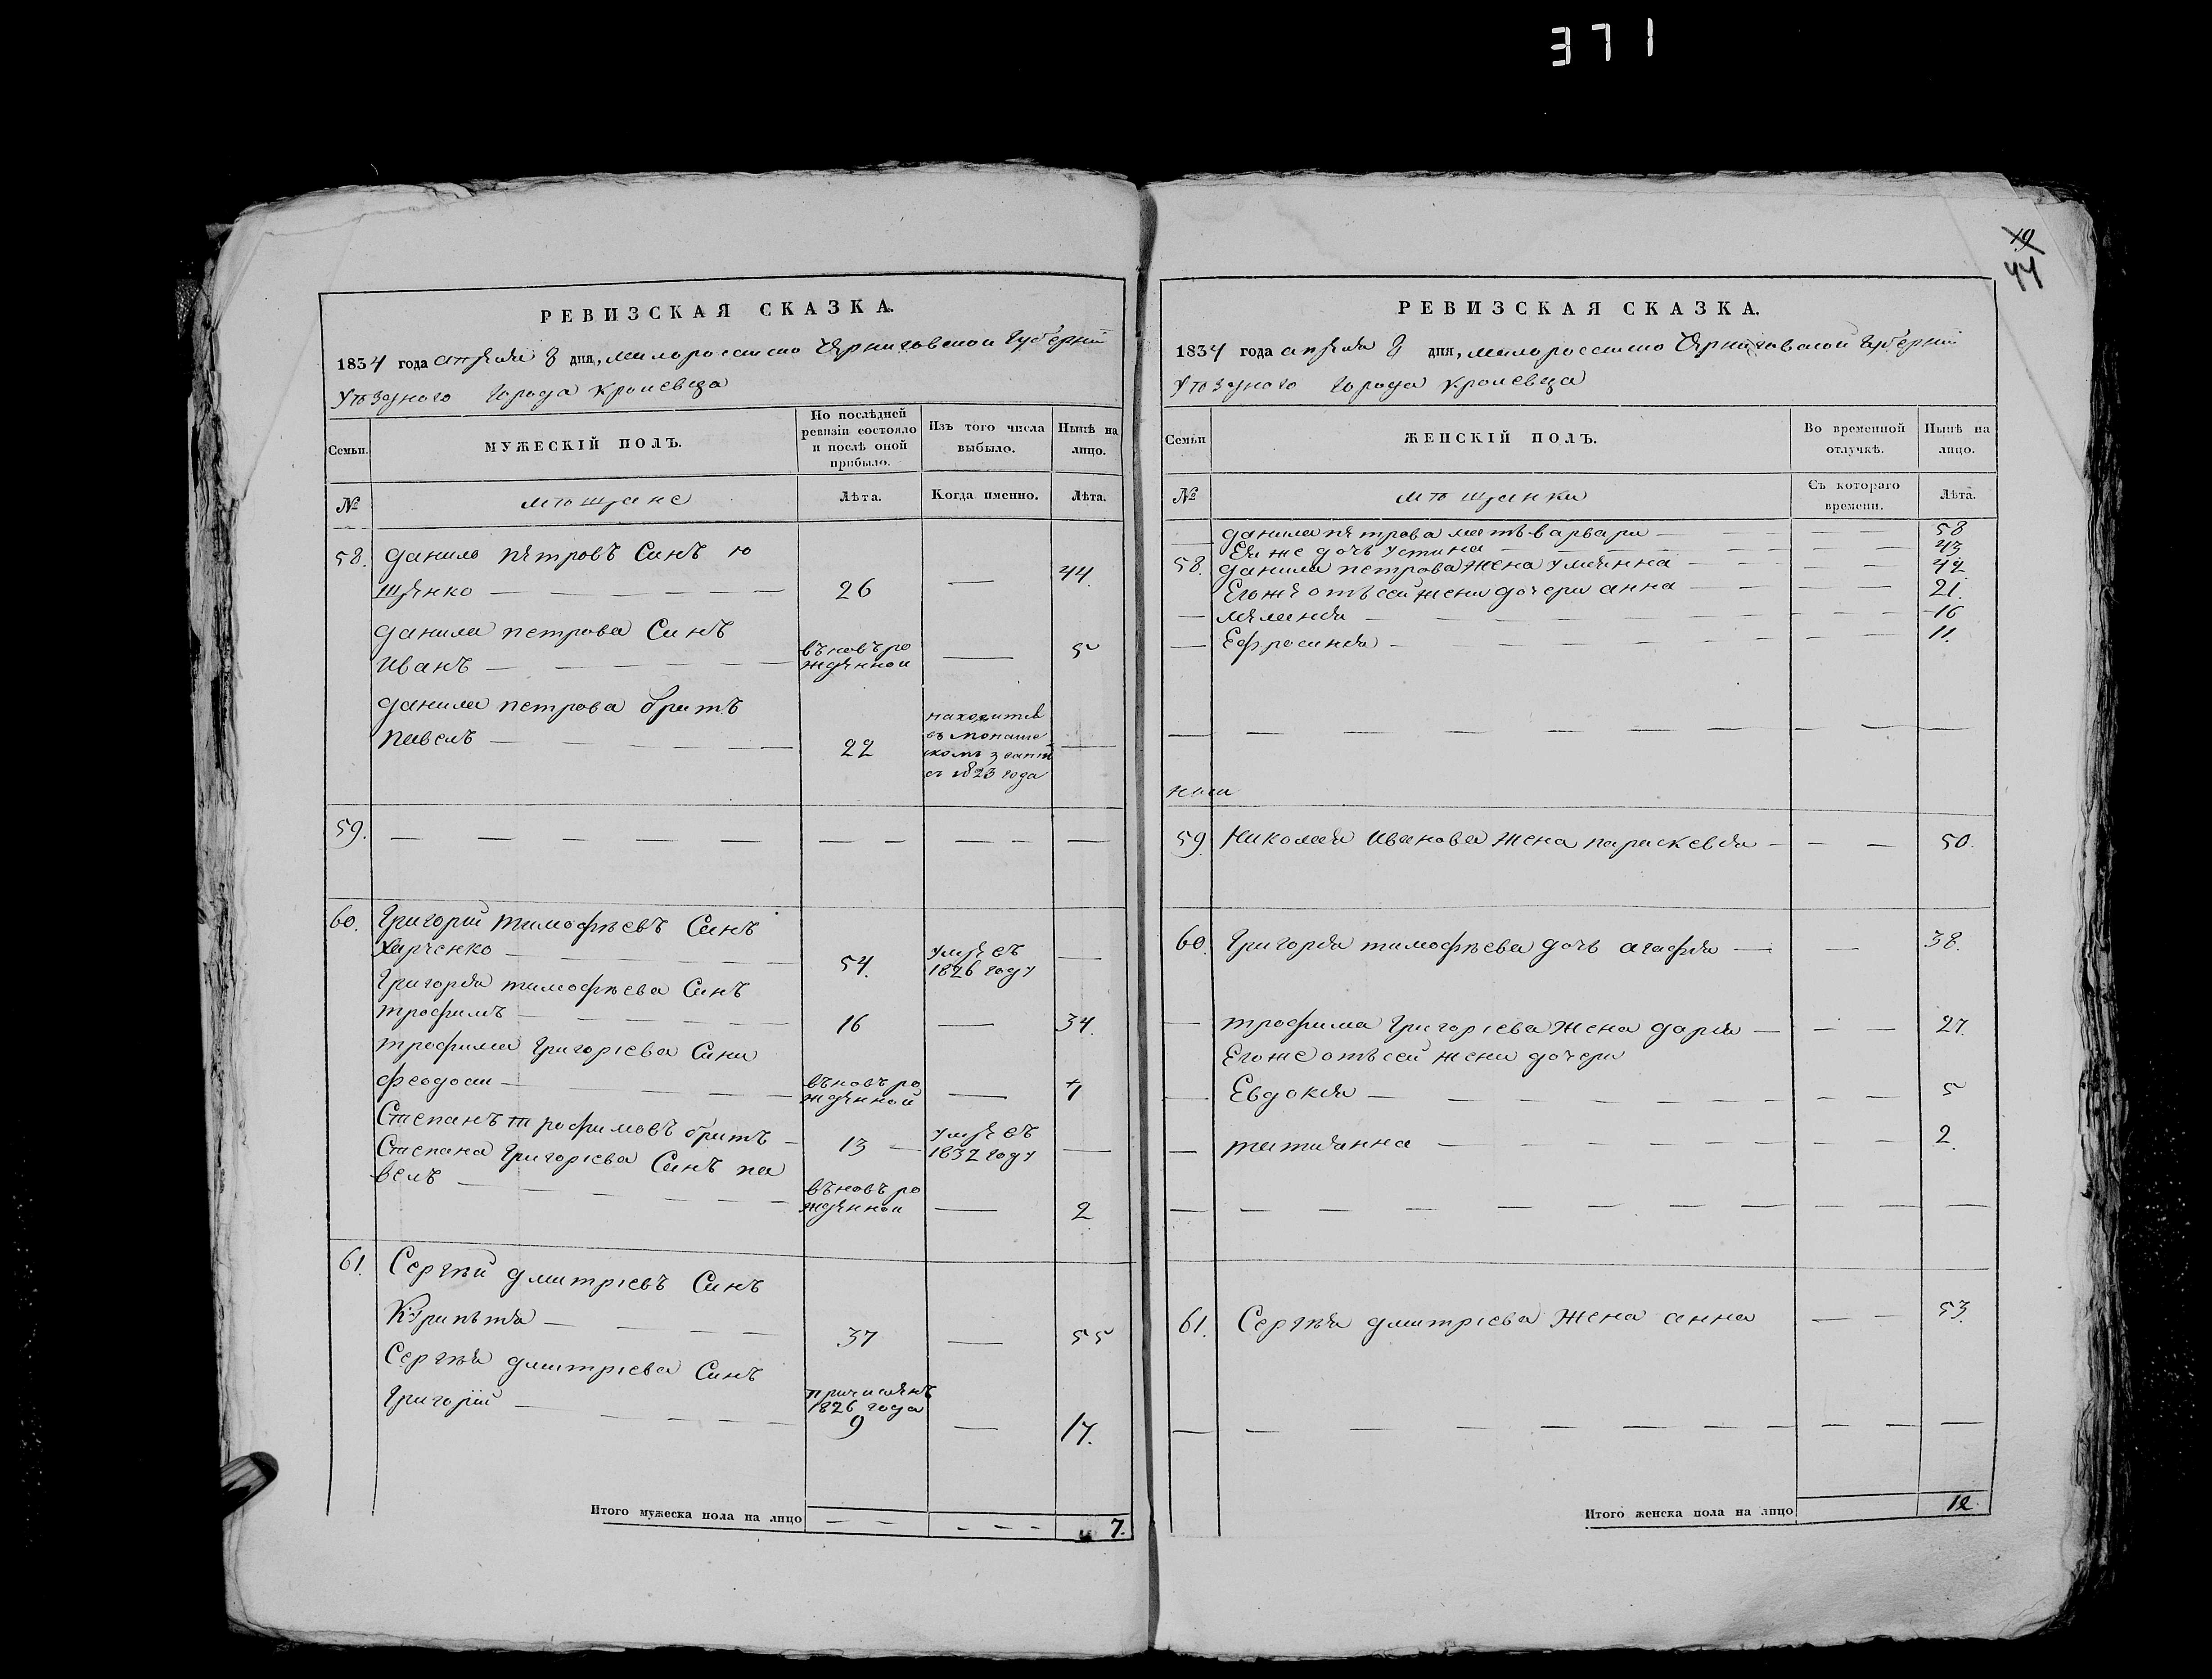 371
19
44
РЕВИЗСКАЯ СКАЗКА.
1834 года апреля 8 дня, малоросиско Черниговской Губернии
Уѣздного города Кролевца
Семьи.
МУЖЕСКІЙ ПОЛЪ.
По послѣдней ревизіи состояло и послѣ оной прибыло.
Изъ того числа выбыло.
Нынѣ на лицо.
№
мѣщане
Лѣта.
Когда именно.
Лѣта.
58. данило петровъ Синъ ю
щенко — 26 — 44.
данила петрова Синъ
иванъ — въновъро
жденной — 5
данила петрова братъ
павелъ — 22 —
находится
въ монаше
скомъ звании
съ 1823 года
59. — — — —
60. Григорий тимофѣевъ Синъ
Харченко — 54. умре въ
1826 году —
Григория тимофѣева Синъ
трофимъ — 16 — 34.
трофима Григорієва Сини
феодоси — въновъ ро
жденной — 7
Стиепанъ трофимовъ братъ — 13 — умре въ
1832 году —
Стиепана Григорієва Синъ па
велъ — въновъ ро
жденной — 2
61. Сергѣй дмитрієвъ Синъ
37 — 55
Сергѣя дмитрієва Синъ
Григорій — причисленъ
1826 года
9 — 17.
Итого мужеска пола на лицо — — — — — 7.
РЕВИЗСКАЯ СКАЗКА.
1834 года апреля 8 дня, малоросиско Черниговской Губернии
Уѣздного города Кролевца
Семьи
ЖЕНСКІЙ ПОЛЪ.
Во временной отлучкѣ.
Нынѣ на лицо.
№
мѣщанки
Съ котораго времени.
Лѣта.
— данила петрова мать варвара — 58
Ея же дочъ устина — 43
58. данила петрова жена улиянна — 42
Егоже отъ сей жени дочери анна — 21.
— меланія — 16
— Ефросинія — 11.
— — — —
59. Николая Иванова жена параскевія — 50.
60. Григорія тимофѣева дочъ агафія — 38.
— трофима Григорієва жена дарія — 27.
Егоже отъ сей жени дочери
— Евдокія — 5
— татиянна — 2.
— — — —
61. Сергѣя дмитрієва жена анна — 53.
— — — —
Итого женска пола на лицо 12.